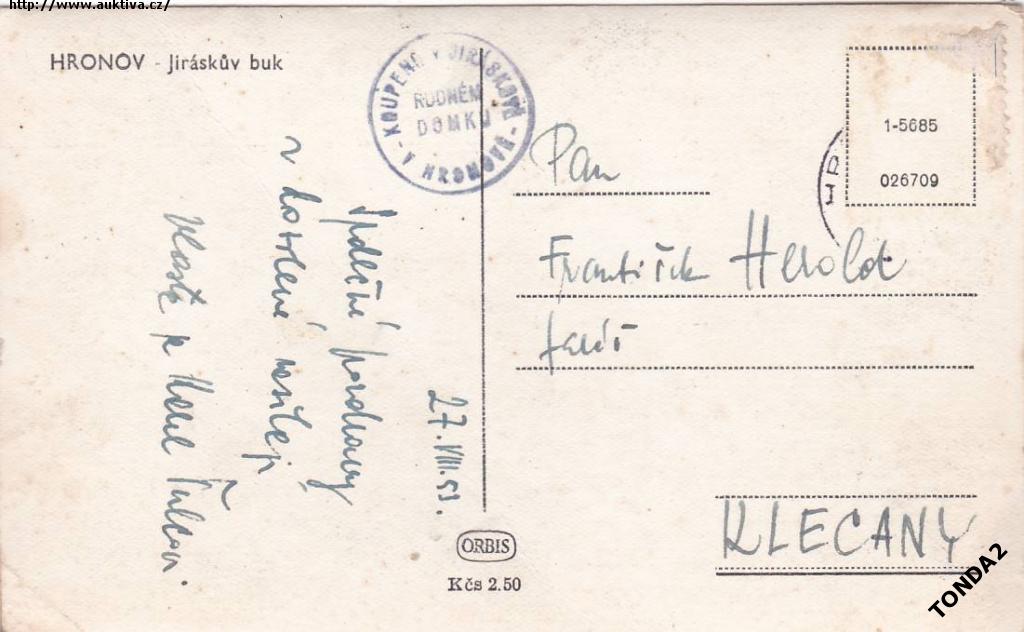 http://www.auktiva.cz/
HRONOV - Jiráskův buk
KOUPENO V JIRÁSKOVĚ
RODNÉM
DOMKU
- V HRONOVĚ -
1-5685
026709
HR
Pan
František Herold
KLECANY
27.VIII.53.
Srdečné pozdravy
z dovolené
Vlasta
ORBIS
Kčs 2.50
TONDA2